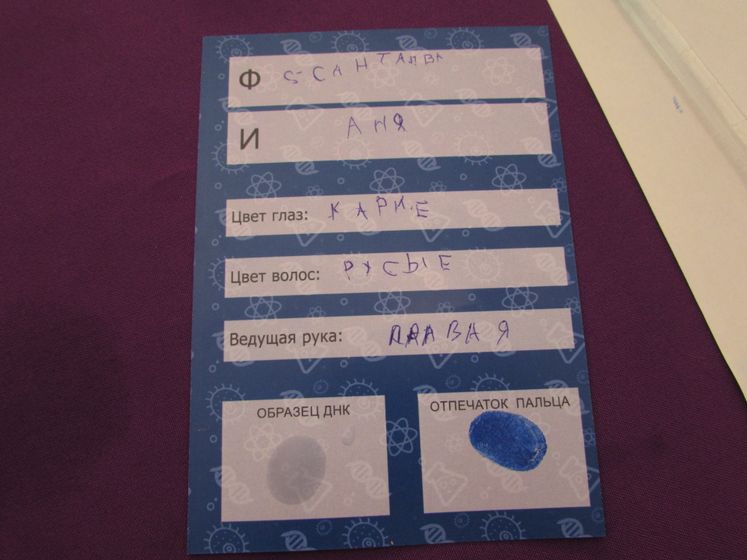 Ф
И АНЯ
Цвет глаз: КАРИЕ
Цвет волос: РУСЫЕ
Ведущая рука: ПРАВАЯ
ОБРАЗЕЦ ДНК
ОТПЕЧАТОК ПАЛЬЦА